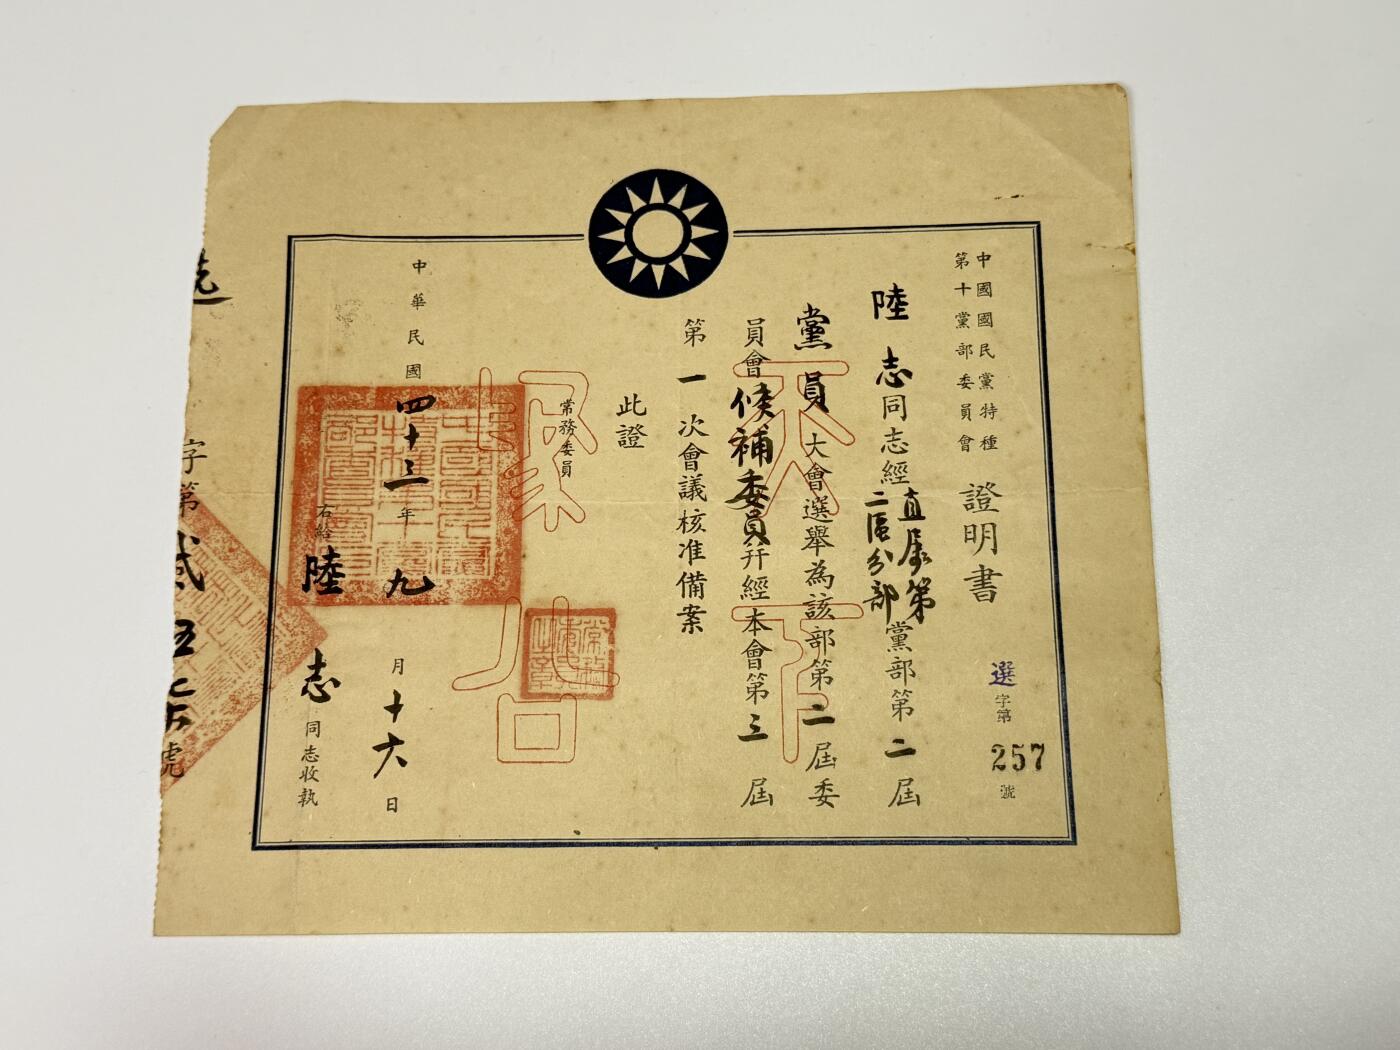 中國國民黨特種
第十黨部委員會
證明書
選字第257號
陸志同志經直屬第二區分部黨部第二屆
黨員大會選舉為該部第二屆委
員會候補委員幷經本會第三屆
第一次會議核准備案
此證
常務委員
常務委員之章
天下
為公
中華民國四十三年九月十六日
中國國民黨特種第十黨部委員會
右給陸志同志收執
字第貳伍七號